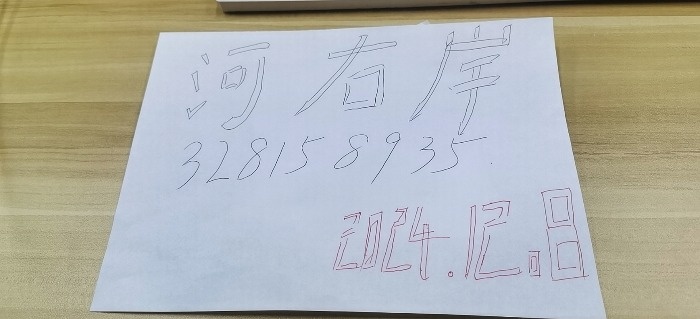 河右岸
328158935
2024.12.8